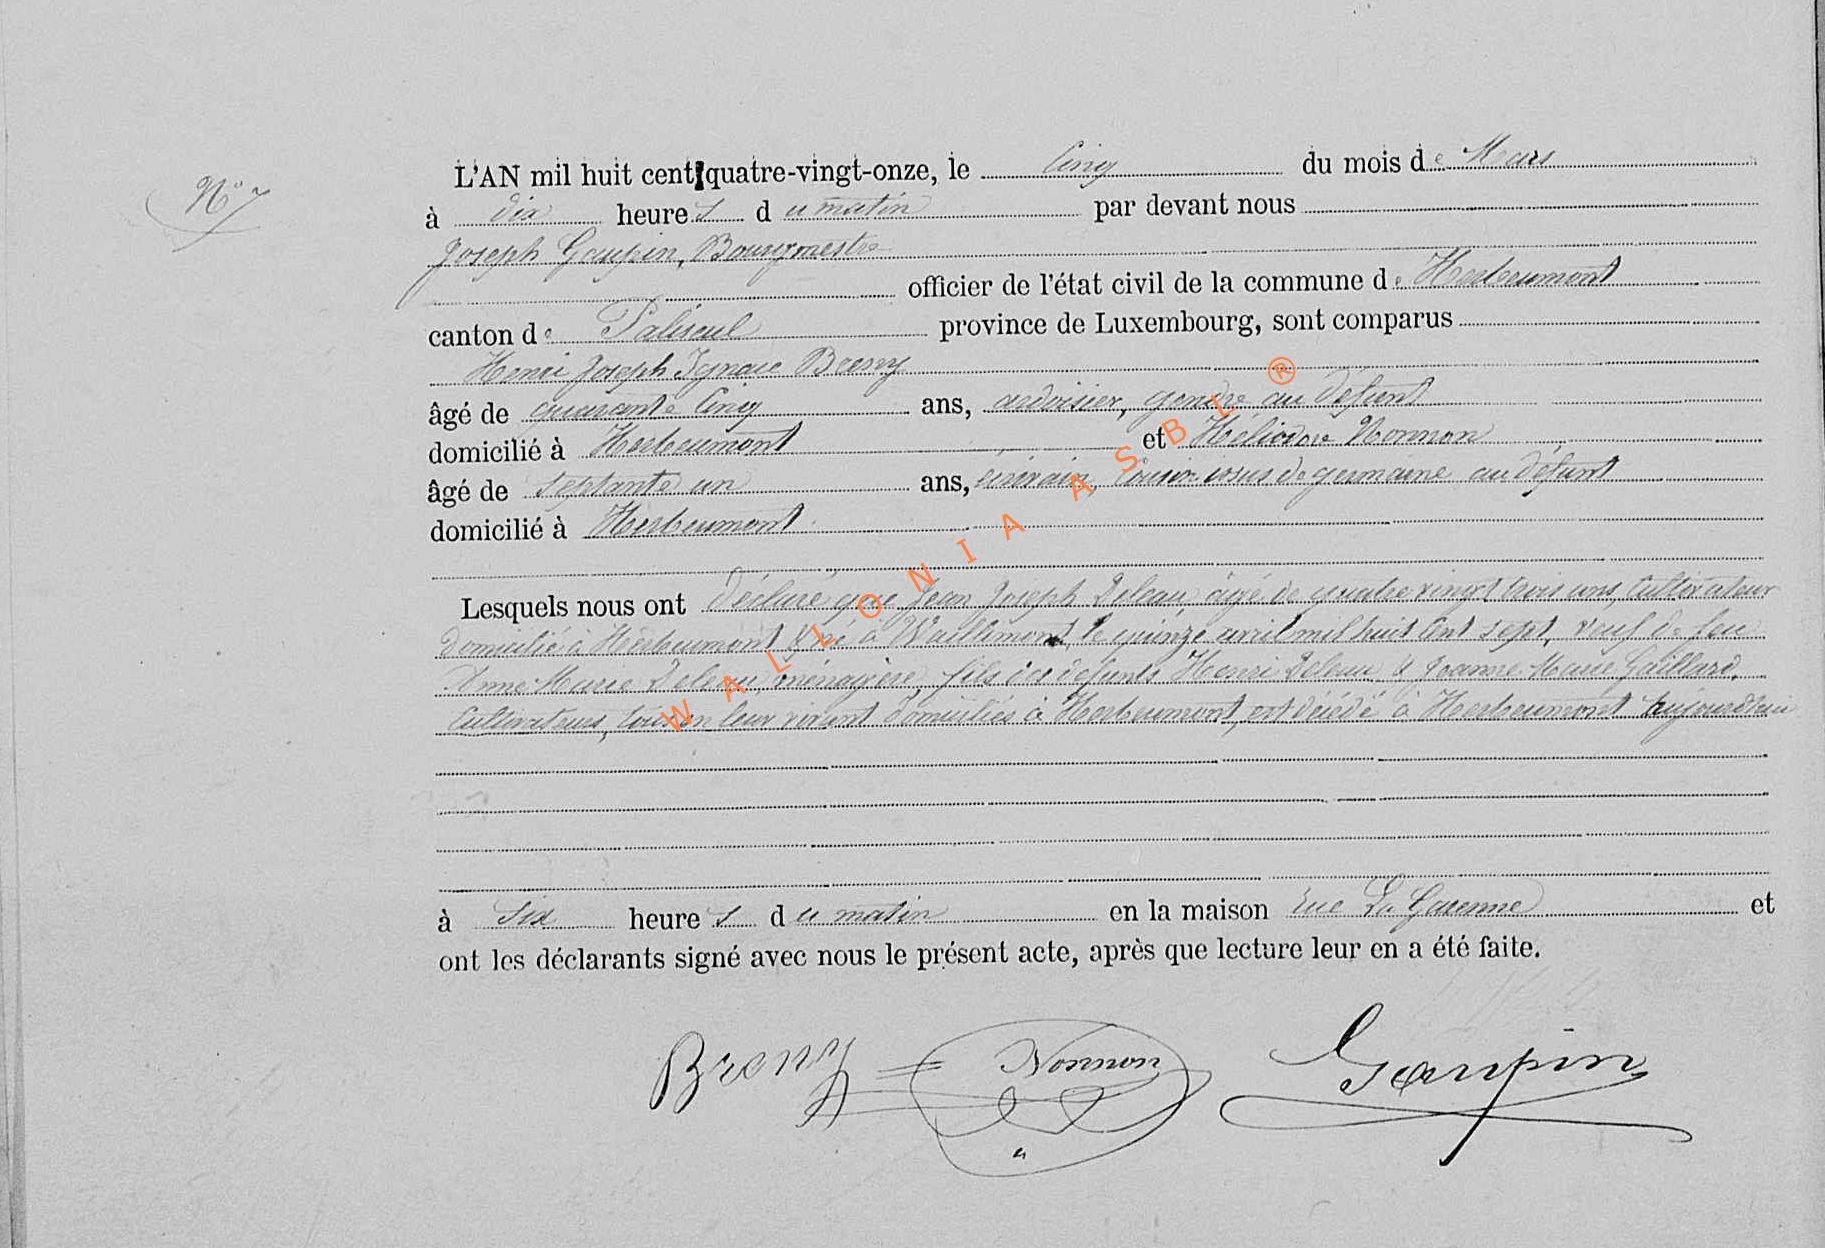 N° 7
L'AN mil huit cent quatre-vingt-onze, le Cinq du mois de Mars
à dix heures du matin par devant nous
Joseph Goupin, Bourgmestre
officier de l'état civil de la commune de Herbeumont
canton de Paliseul province de Luxembourg, sont comparus
Henri Joseph Ignace Breny
âgé de quarante Cinq ans, ardoisier, gendre au défunt
domicilié à Herbeumont et Héliodore Nonnon
âgé de septante un ans, écrivain, Cousin issus de germaine au défunt
domicilié à Herbeumont
Lesquels nous ont déclaré que Jean Joseph Deleau, âgé de quatre vingt trois ans, Cultivateur
domicilié à Herbeumont & né à Waillimont, le quinze avril mil huit Cent sept, veuf de feu
Anne Marie Deleau, ménagère, fils des défunts Henri Deleau & Jeanne Marie Gaillard,
Cultivateurs, tous en leur vivant domiciliés à Herbeumont, est décédé à Herbeumont aujourdhui
à six heures du matin en la maison rue La Garenne et
ont les déclarants signé avec nous le présent acte, après que lecture leur en a été faite.
Breny Nonnon Goupin
WALLONIA ASBL ®